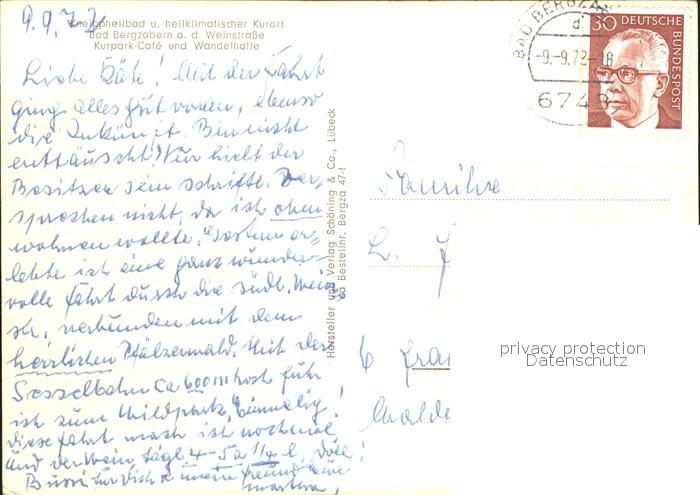 9.9.72
Kneippheilbad u. heilklimatischer Kurort
Bad Bergzabern a. d. Weinstraße
Kurpark-Café und Wandelhalle
Liebe Käte! Mit der Fahrt
ging alles gut voran, ebenso
die Ankunft. Bin nicht
enttäuscht! Nur hielt der
Besitzer sein schriftl. Ver-
sprechen nicht, da ich oben
wohnen wollte. Gestern er-
lebte ich eine ganz wunder-
volle Fahrt durch die südl. Wein
str. verbunden mit dem
herrlichen Pfälzerwald. Mit der
Sesselbahn ca 600 m hoch fuhr
ich zum Wildpark, Einmalig!
diese Fahrt mach ich nochmal
Und der Wein, tägl 4-5 a 1/4 l. toll!
Bussi für Dich
Martha
Hersteller und Verlag Schöning & Co., Lübeck
Bestellnr. Bergza 47-f
BAD BERGZABERN
d
-9.-9.72-18
6748
30 DEUTSCHE
BUNDESPOST
Familie
L.
6
privacy protection
Datenschutz